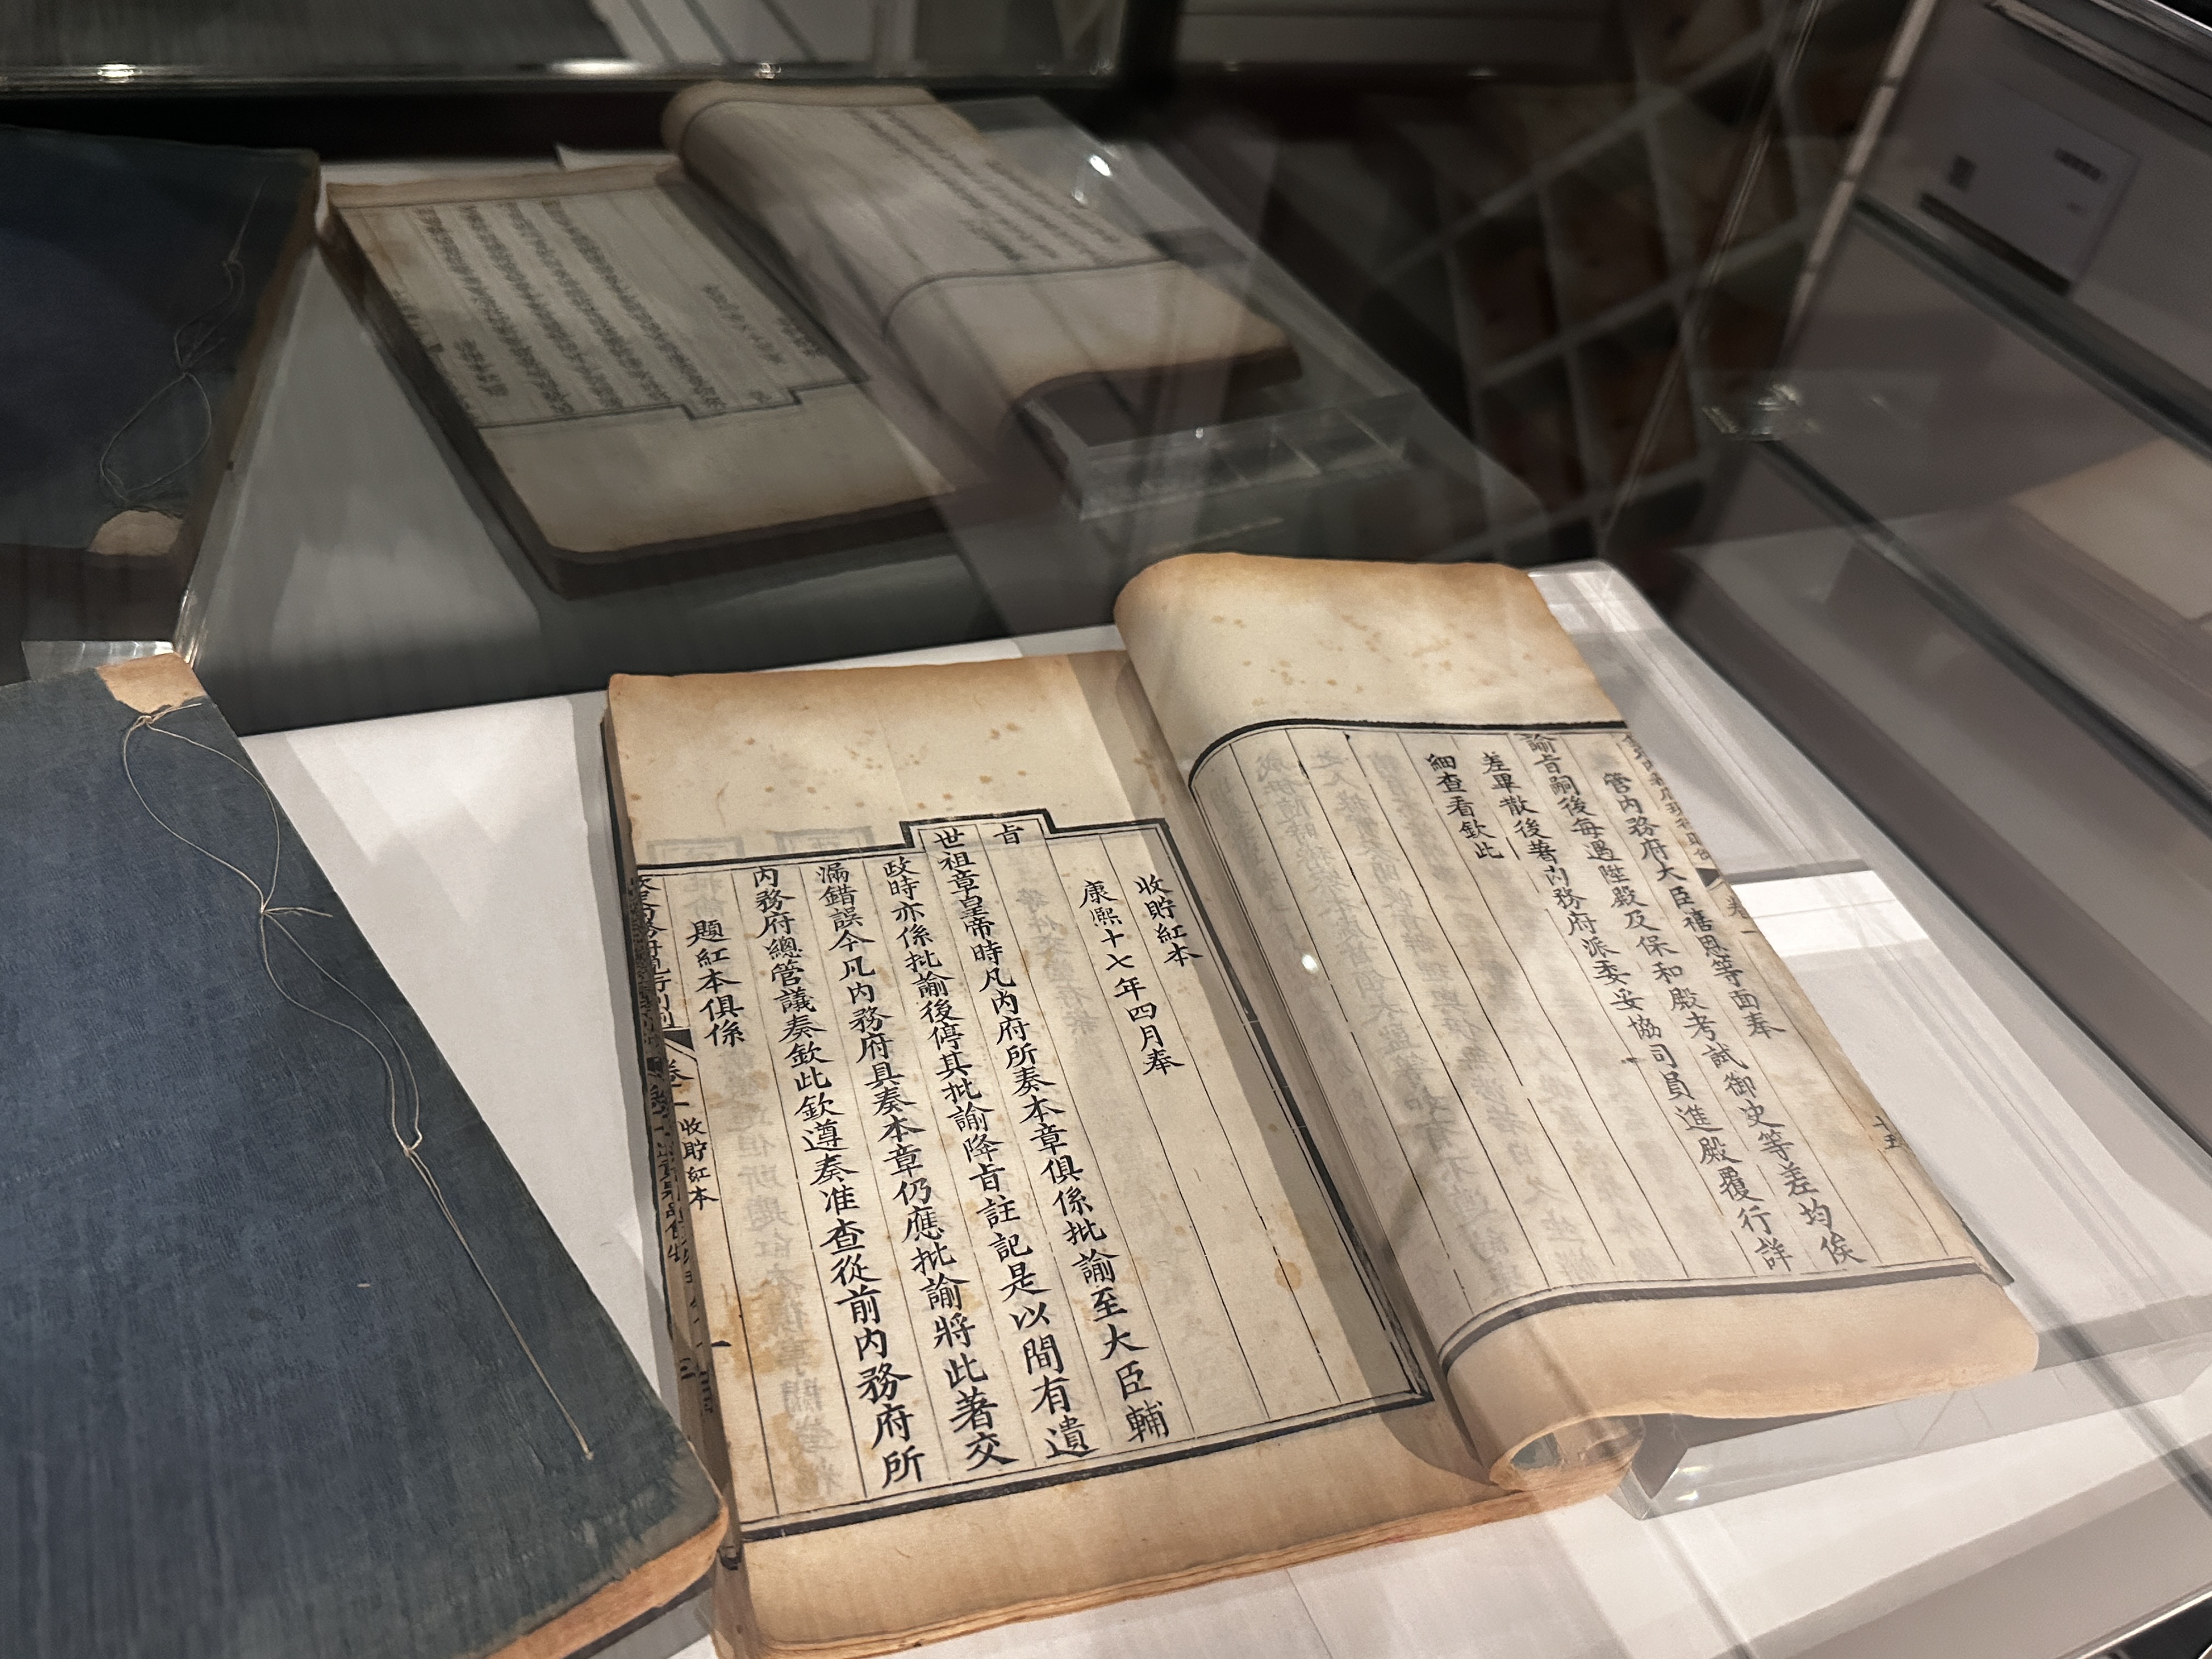 管內務府大臣禧恩等面奉
諭旨嗣後每遇陞殿及保和殿考試御史等差均俟
差畢散後著內務府派委妥協司員進殿覆行詳
細查看欽此
卷一
十五
收貯紅本
康熙十七年四月奉
旨
世祖章皇帝時凡內府所奏本章俱係批諭至大臣輔
政時亦係批諭後停其批諭降旨註記是以間有遺
漏錯誤今凡內務府具奏本章仍應批諭將此著交
內務府總管議奏欽此欽遵奏准查從前內務府所
題紅本俱係
卷一
收貯紅本